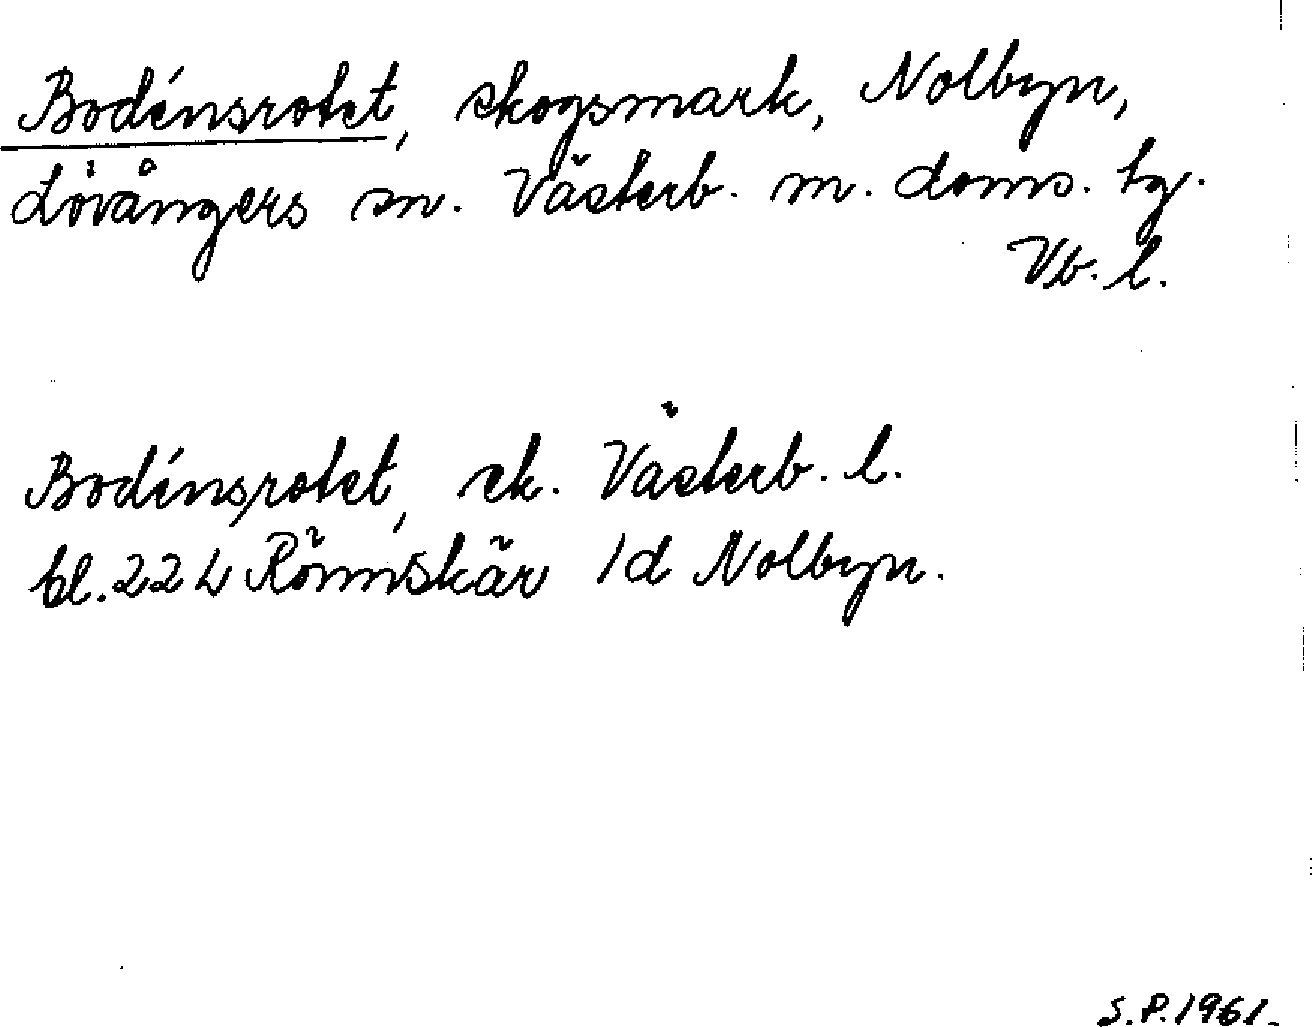 Bodénsrotet, skogsmark, Nolbyn,
Lövångers sn. Västerb. m. doms. tg.
Vb. l.
Bodénsrotet, sk. Västerb. l.
bl. 22 L Rönnskär 1d Nolbyn.
S.P. 1961.